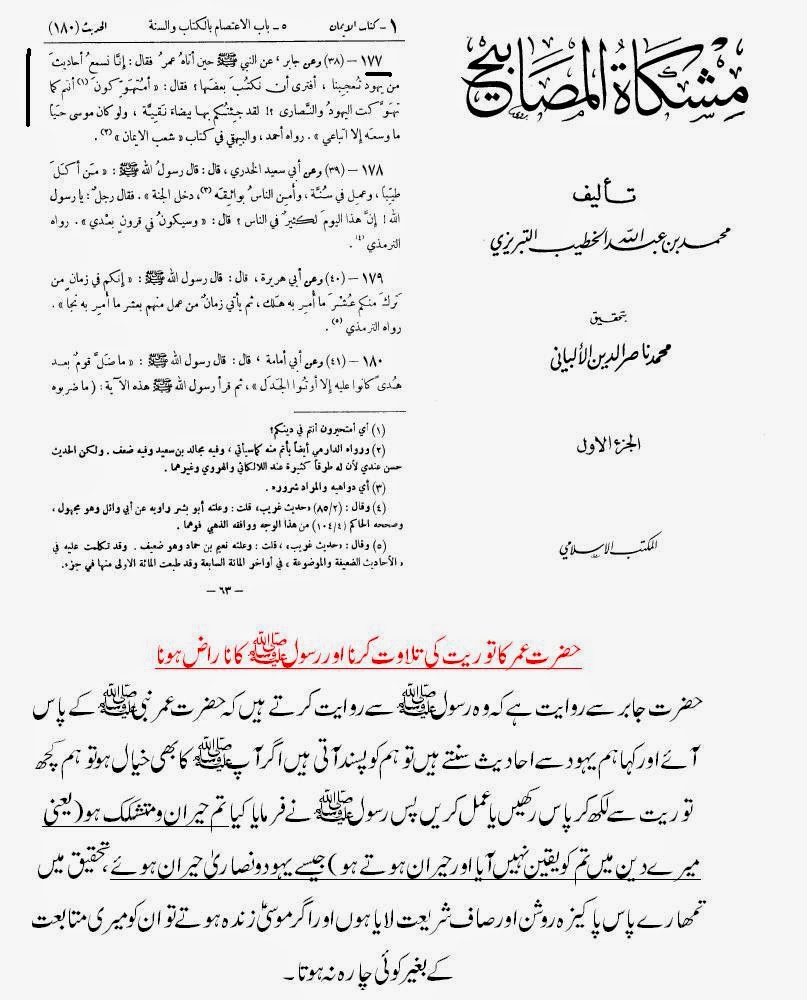 ١ – كتاب الايمان ٥ – باب الاعتصام بالكتاب والسنة الحديث (١٨٠)
١٧٧ – (٣٨) وعن جابر ، عن النبي ﷺ حين أتاهُ عمرُ فقال : إنّا نسمعُ أحاديثَ
من يهودَ تُعجبنا ، أفترى أن نكتُبَ بعضَها ؟ فقال : « أمُتهوِّكونَ (١) أنتم كما
تهوَّكت اليهودُ والنَّصارى ؟! لقد جئتُكم بها بيضاءَ نقيَّةً ، ولو كان موسى حيّاً
ما وسعَه إلا اتّباعي » . رواه أحمد ، والبيهقي في كتاب « شعب الايمان » (٢) .
١٧٨ – (٣٩) وعن أبي سعيد الخدري ، قال : قال رسولُ الله ﷺ : « مَن أكلَ
طيّباً ، وعملَ في سُنَّة ، وأمِنَ الناسُ بوائقَه (٣) ، دخل الجنة » . فقال رجلٌ : يا رسول
الله ! إنَّ هذا اليومَ لكثيرٌ في الناس ؟ قال : « وسيكونُ في قرونٍ بعْدي » . رواه
الترمذي (٤) .
١٧٩ – (٤٠) وعن أبي هريرة ، قال : قال رسول الله ﷺ : « إنكم في زمانٍ من
تركَ منكم عُشْرَ ما أُمِرَ به هلَكَ ، ثم يأتي زمانٌ من عمل منهم بعشر ما أُمِر به نجا » .
رواه الترمذي (٥) .
١٨٠ – (٤١) وعن أبي أمامة ، قال : قال رسول الله ﷺ : « ما ضلَّ قومٌ بعد
هُدىً كانوا عليه إلا أوتُوا الجدَل » ، ثم قرأ رسول الله ﷺ هذه الآية : (ما ضربوه
(١) أي أمتحيرون أنتم في دينكم؟
(٢) ورواه الدارمي أيضاً بأتم منه كما سيأتي ، وفيه مجالد بن سعيد وفيه ضعف . ولكن الحديث
حسن عندي لأن له طرقاً كثيرة عند اللالكائي والهروي وغيرهما .
(٣) أي دواهيه والمراد شروره .
(٤) وقال : (٨٥/٢) «حديث غريب» قلت : وعلته أبو بشر راويه عن أبي وائل وهو مجهول ،
وصححه الحاكم (١٠٤/٤) من هذا الوجه ووافقه الذهبي فوهما .
(٥) وقال : «حديث غريب» ، قلت : وعلته نعيم بن حماد وهو ضعيف . وقد تكلمت عليه في
« الأحاديث الضعيفة والموضوعة ، في أواخر المائة السابعة وقد طبعت المائة الاولى منها في جزء .
– ٦٣ –
مشكاة المصابيح
تأليف
محمد بن عبد الله الخطيب التبريزي
بتحقيق
محمد ناصر الدين الألباني
الجزء الاول
المكتب الاسلامي
حضرت عمر کا توریت کی تلاوت کرنا اور رسول ﷺ کا ناراض ہونا
حضرت جابر سے روایت ہے کہ وہ رسول ﷺ سے روایت کرتے ہیں کہ حضرت عمر نبی ﷺ کے پاس
آئے اور کہا ہم یہود سے احادیث سنتے ہیں تو ہم کو پسند آتی ہیں اگر آپ ﷺ کا بھی خیال ہو تو ہم کچھ
توریت سے لکھ کر پاس رکھیں یا عمل کریں پس رسول ﷺ نے فرمایا کیا تم حیران و متشکک ہو (یعنی
میرے دین میں تم کو یقین نہیں آیا اور حیران ہوتے ہو) جیسے یہود و نصاریٰ حیران ہوئے، تحقیق میں
تمھارے پاس پاکیزہ روشن اور صاف شریعت لایا ہوں اور اگر موسیٰ زندہ ہوتے تو ان کو میری متابعت
کے بغیر کوئی چارہ نہ ہوتا۔